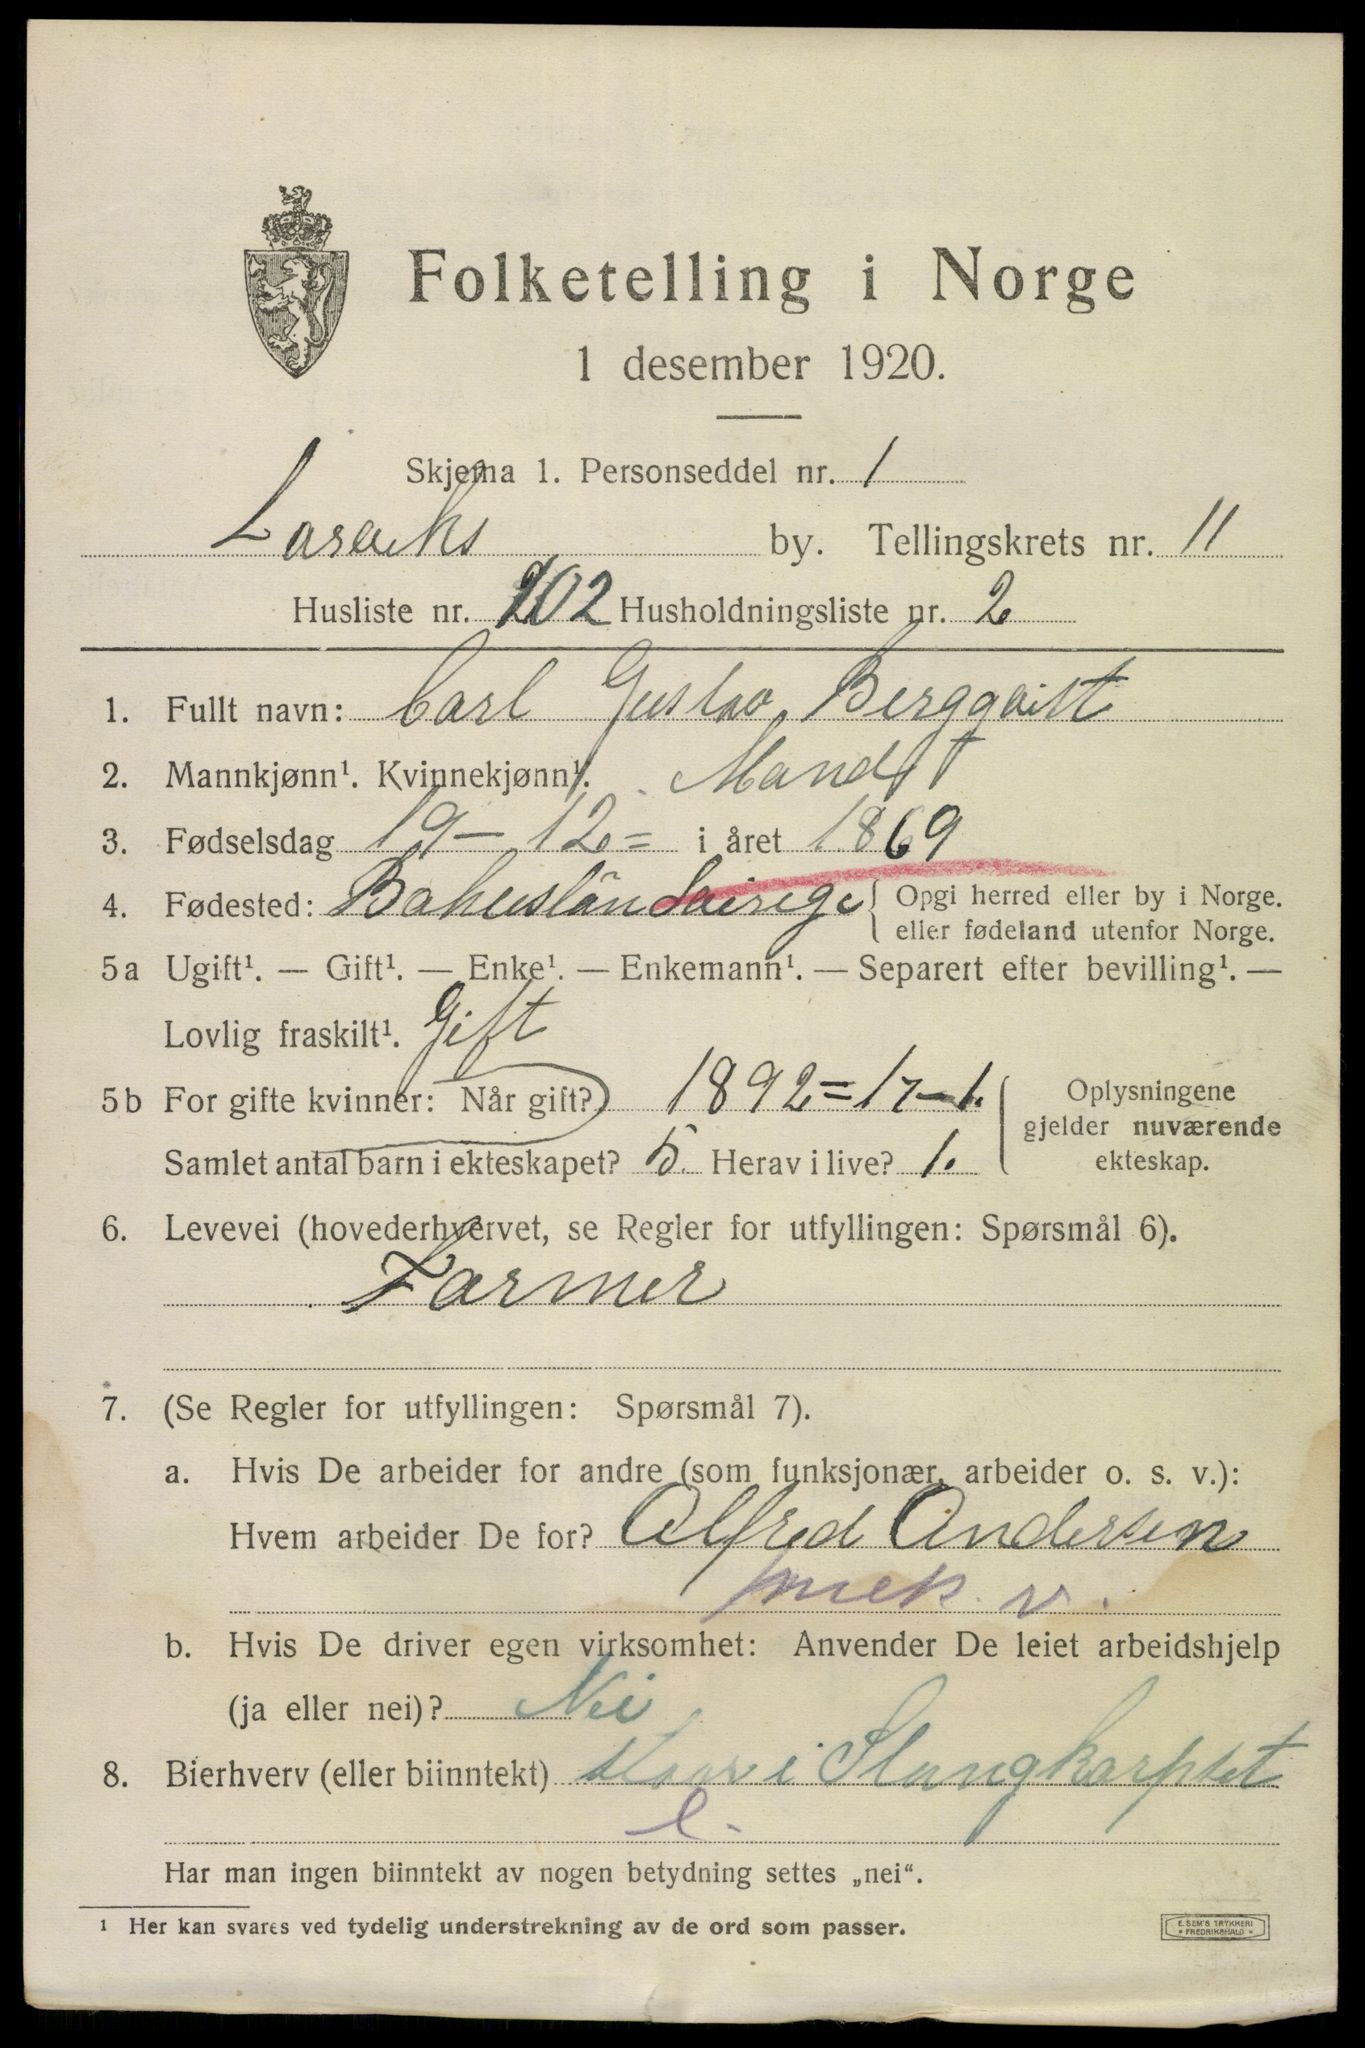 Folketelling i Norge
1 desember 1920.
Skjema 1. Personseddel nr. 1
Larviks by. Tellingskrets nr. 11
Husliste nr. 202 Husholdningsliste nr. 2
1. Fullt navn: Carl Gustav Bergqvist
2. Mannkjønn¹. Kvinnekjønn¹. Mand
3. Fødselsdag 19–12= i året 1869
4. Fødested: Bahuslän Sverige { Opgi herred eller by i Norge.
eller fødeland utenfor Norge.
5a Ugift¹. — Gift¹. — Enke¹. — Enkemann¹. — Separert efter bevilling¹. —
Lovlig fraskilt¹. Gift
5b For gifte kvinner: Når gift? 1892=17–1. { Oplysningene
gjelder nuværende
Samlet antal barn i ekteskapet? 5. Herav i live? 1. ekteskap.
6. Levevei (hovederhvervet, se Regler for utfyllingen: Spørsmål 6).
Farmer
7. (Se Regler for utfyllingen: Spørsmål 7).
a. Hvis De arbeider for andre (som funksjonær, arbeider o. s. v.):
Hvem arbeider De for? Alfred Andersen
mek. v.
b. Hvis De driver egen virksomhet: Anvender De leiet arbeidshjelp
(ja eller nei)? Nei
8. Bierhverv (eller biinntekt) i Slangkorpset
Har man ingen biinntekt av nogen betydning settes „nei“.
¹ Her kan svares ved tydelig understrekning av de ord som passer.
E. SEM'S TRYKKERI
* FREDRIKSHALD *